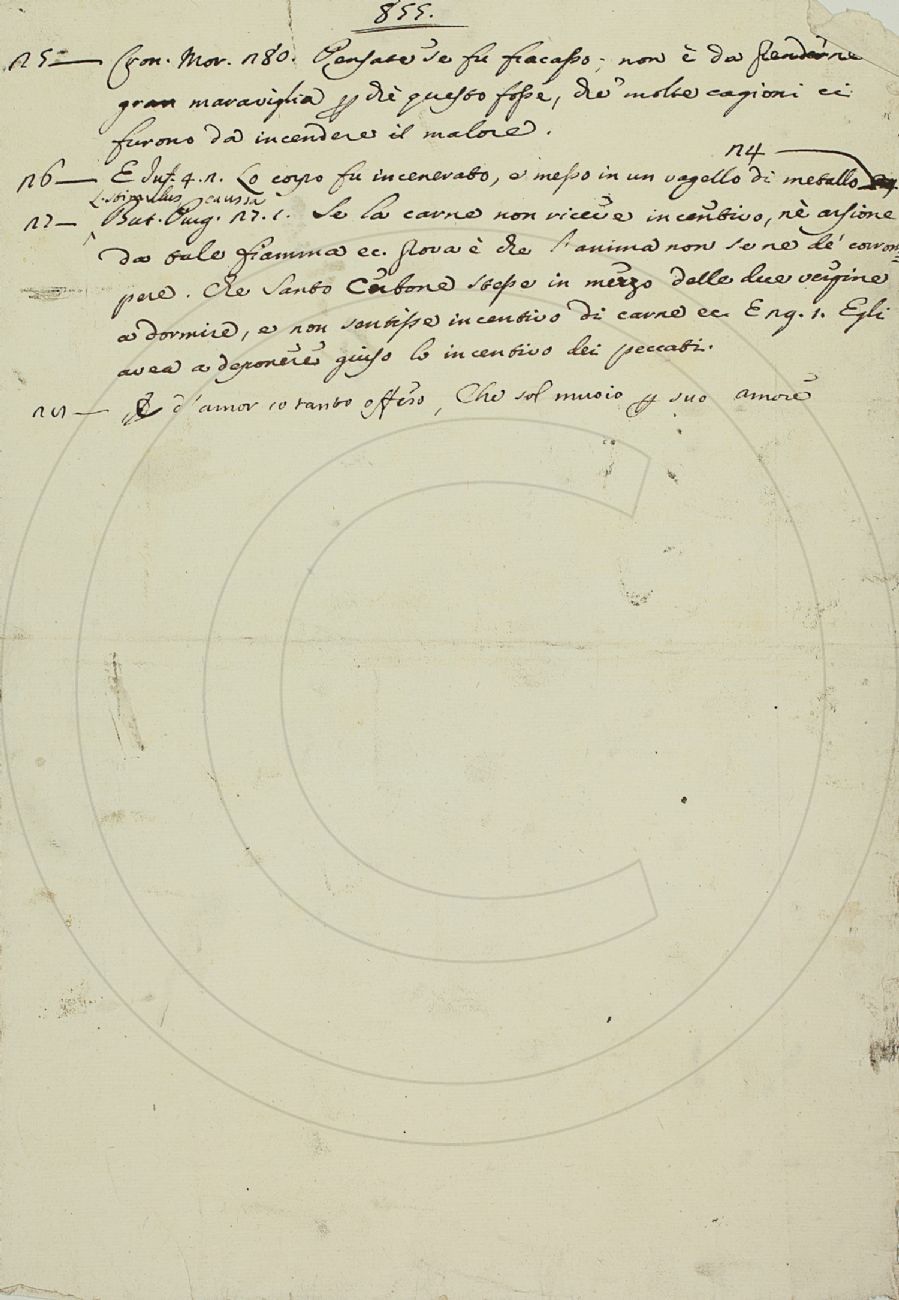 855.
n5 — Cron. Mor. 280. Pensate se fu fracasso; non è da prenderne
gran maraviglia p chè questo fosse, chè molte cagioni ci
furono da incendere il malore.
n4
n6 — E Inf. 4. 2. Lo corpo fu incenerato, e messo in un vagello di metallo
n7 — But. Purg. 27. 1. Se la carne non riceve incentivo, nè arsione
da tale fiamma ec. prova è che l'anima non se ne de' corrom=
pere. Che Santo stesse in mezzo delle due vergine
a dormire, e non sentisse incentivo di carne ec. E 19. 1. Egli
avea a deponere giuso lo incentivo dei peccati.
— d'amor io tanto offerso, Che sol muoio p suo amore